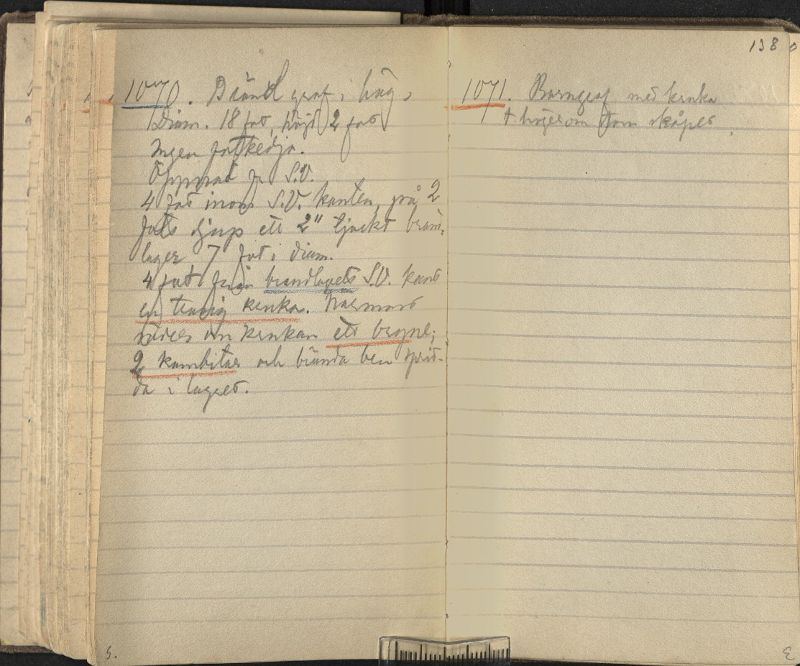 1070. Bränd graf i hög.
Diam. 18 fot, höjd 2 fot
Ingen fotkedja.
Öppnad fr. S.V.
4 fot inom S.V. kanten, på 2
fots djup ett 2" tjockt bränn-
lager 7 fot i diam.
4 fot från brandlagrets S.V. kant
en trasig kruka. Närmast
under om krukan ett bryne;
2 kambitar och brända ben sprid-
da i lagret.
138
1071. Barngraf med kruka
t höger om som skåpet.